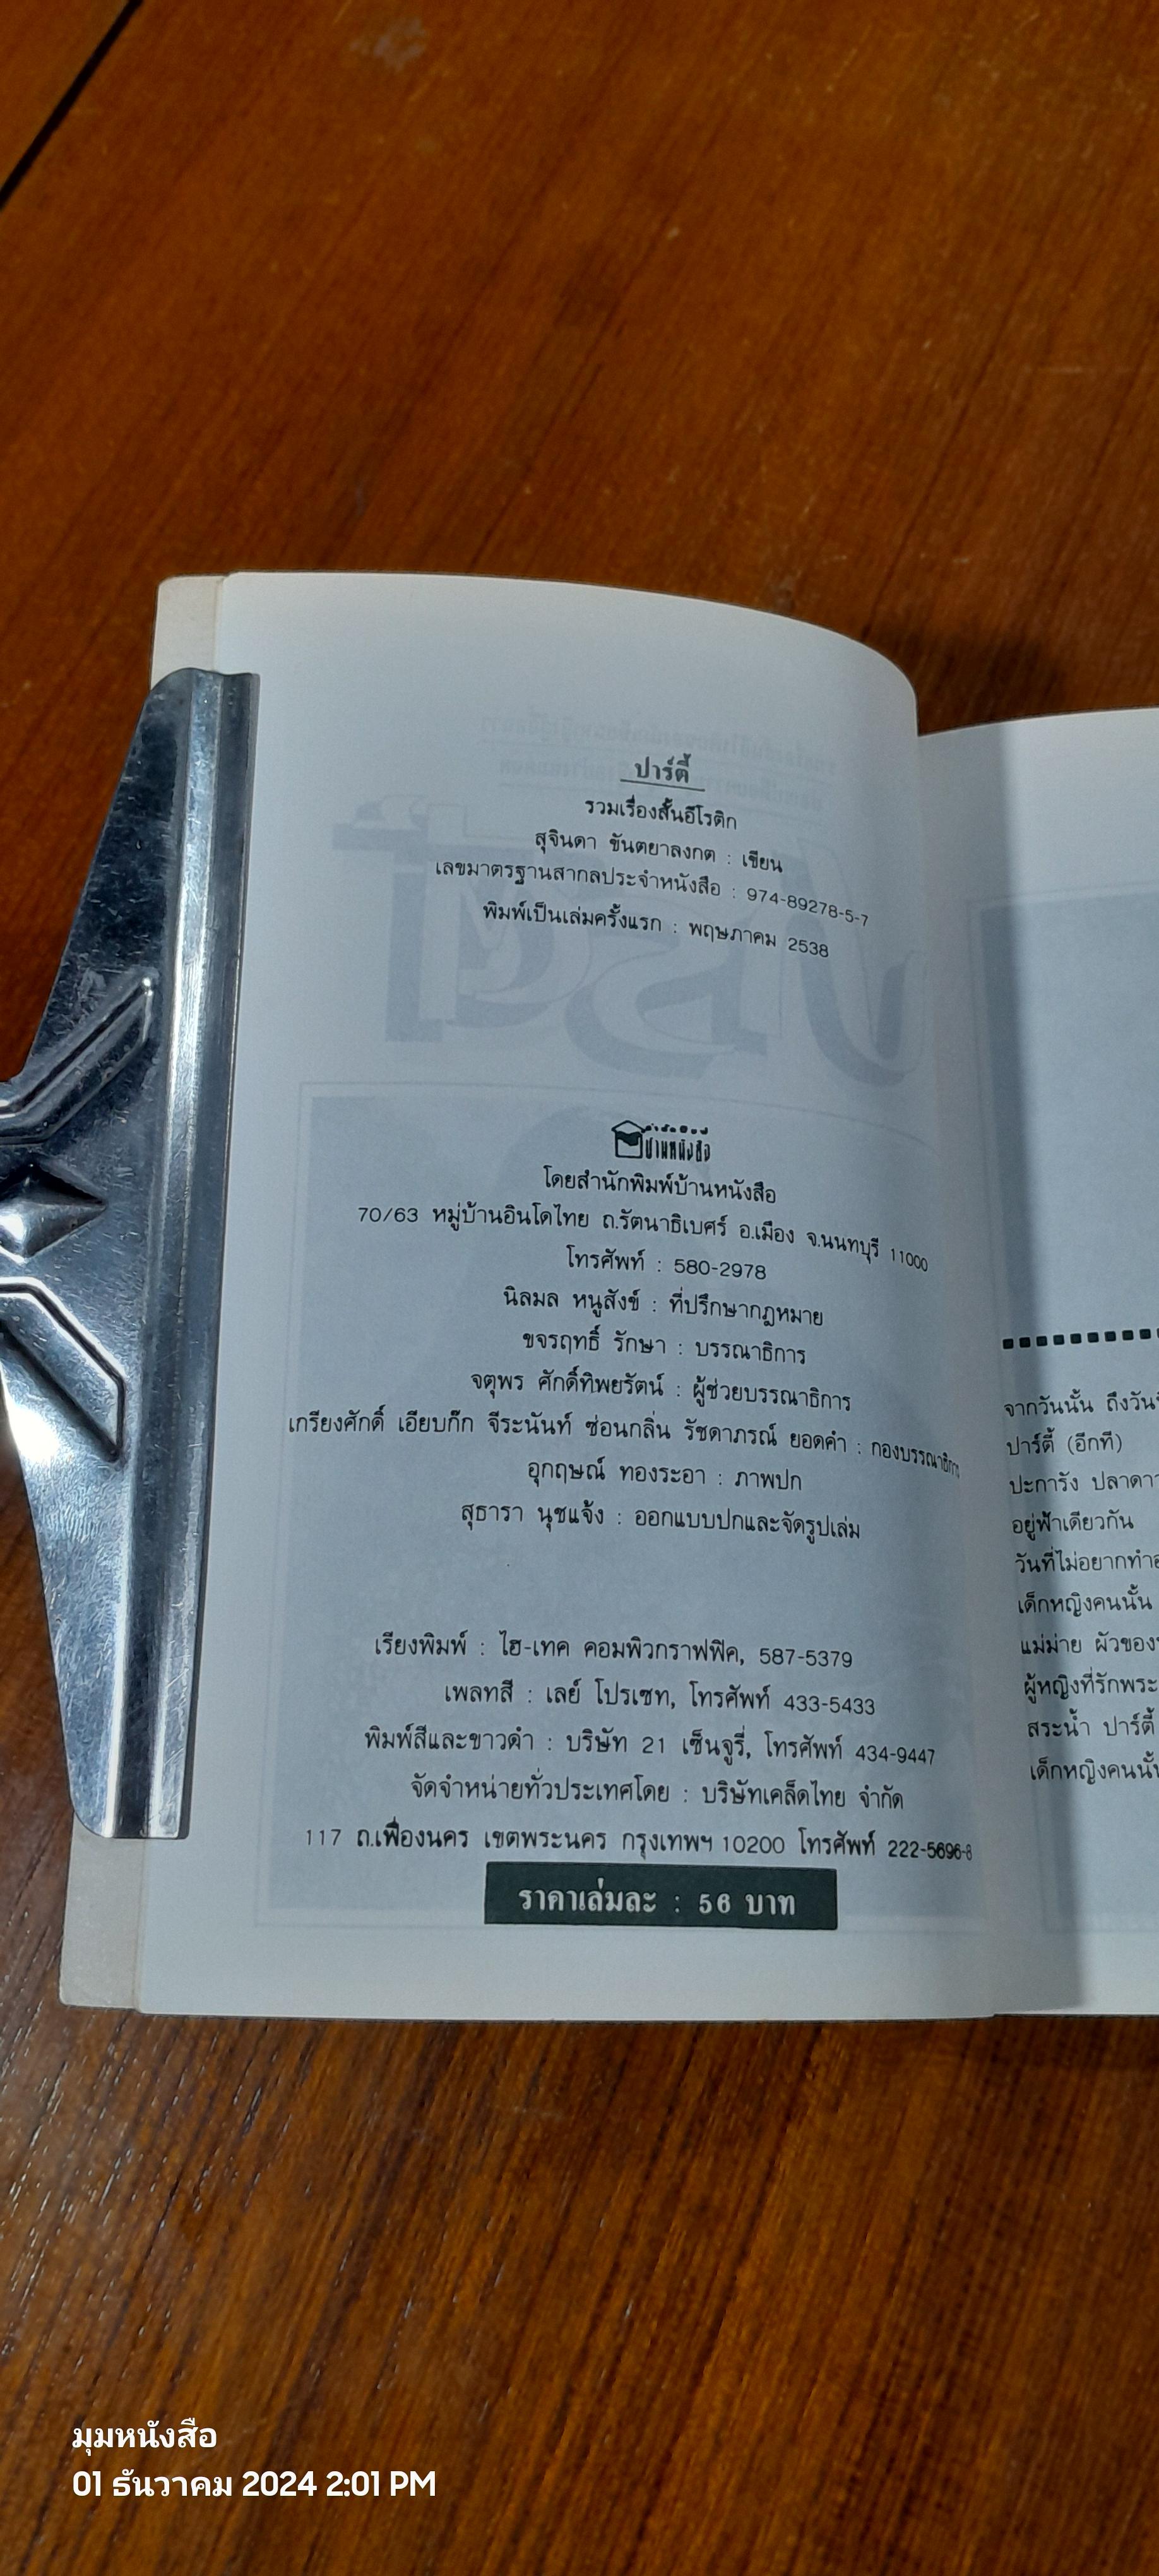 ปาร์ตี้
รวมเรื่องสั้นอีโรติก
สุจินดา ขันตยาลงกต : เขียน
เลขมาตรฐานสากลประจำหนังสือ : 974-89278-5-7
พิมพ์เป็นเล่มครั้งแรก : พฤษภาคม 2538
สำนักพิมพ์
บ้านหนังสือ
โดยสำนักพิมพ์บ้านหนังสือ
70/63 หมู่บ้านอินโดไทย ถ.รัตนาธิเบศร์ อ.เมือง จ.นนทบุรี 11000
โทรศัพท์ : 580-2978
นิลมล หนูสังข์ : ที่ปรึกษากฎหมาย
ขจรฤทธิ์ รักษา : บรรณาธิการ
จตุพร ศักดิ์ทิพยรัตน์ : ผู้ช่วยบรรณาธิการ
เกรียงศักดิ์ เอียบกี๊ก จีระนันท์ ซ่อนกลิ่น รัชดาภรณ์ ยอดคำ : กองบรรณาธิการ
อุกฤษณ์ ทองระอา : ภาพปก
สุธารา นุชแจ้ง : ออกแบบปกและจัดรูปเล่ม
เรียงพิมพ์ : ไฮ-เทค คอมพิวกราฟฟิค, 587-5379
เพลทสี : เลย์ โปรเซท, โทรศัพท์ 433-5433
พิมพ์สีและขาวดำ : บริษัท 21 เซ็นจูรี่, โทรศัพท์ 434-9447
จัดจำหน่ายทั่วประเทศโดย : บริษัทเคล็ดไทย จำกัด
117 ถ.เฟื่องนคร เขตพระนคร กรุงเทพฯ 10200 โทรศัพท์ 222-5696-8
ราคาเล่มละ : 56 บาท
จากวันนั้น ถึงวัน
ปาร์ตี้ (อีกที)
ปะการัง
อยู่ฟ้าเดียวกัน
วันที่ไม่อยาก
เด็กหญิงคนนั้น
แม่ม่าย ผัวของ
ผู้หญิงที่รัก
สระน้ำ ปาร์ตี้
เด็กหญิงคนนั้น
มุมหนังสือ
01 ธันวาคม 2024 2:01 PM